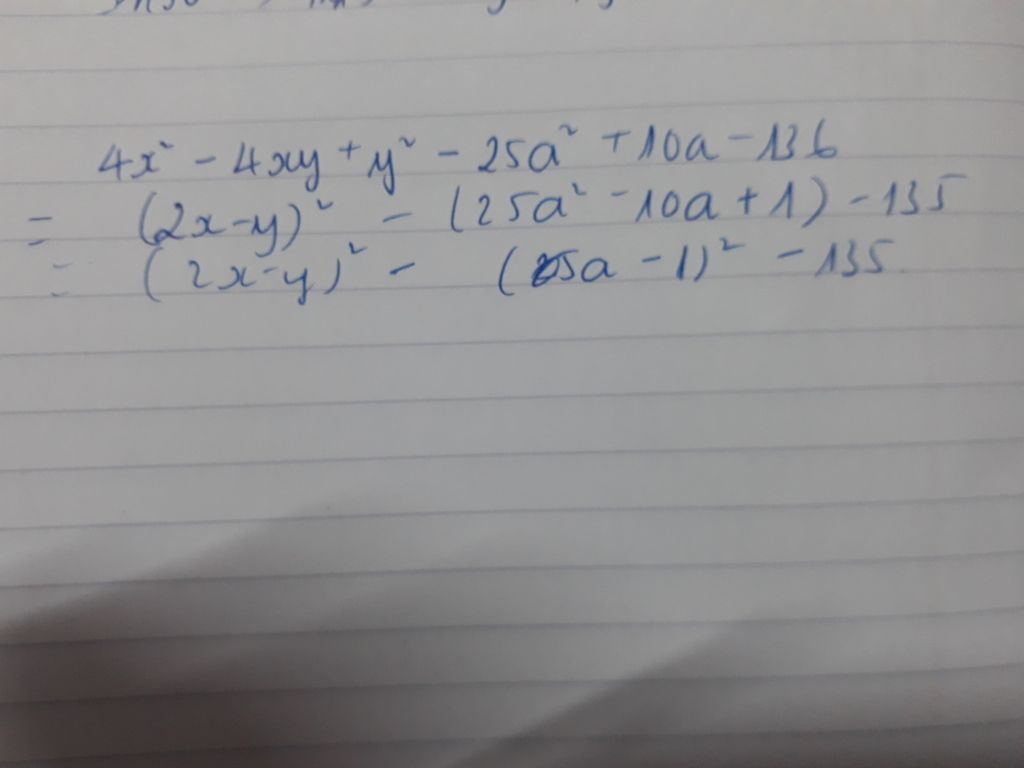 4x² - 4xy + y² - 25a² + 10a - 136
= (2x-y)² - (25a² - 10a + 1) - 135
= (2x-y)² - (5a - 1)² - 135